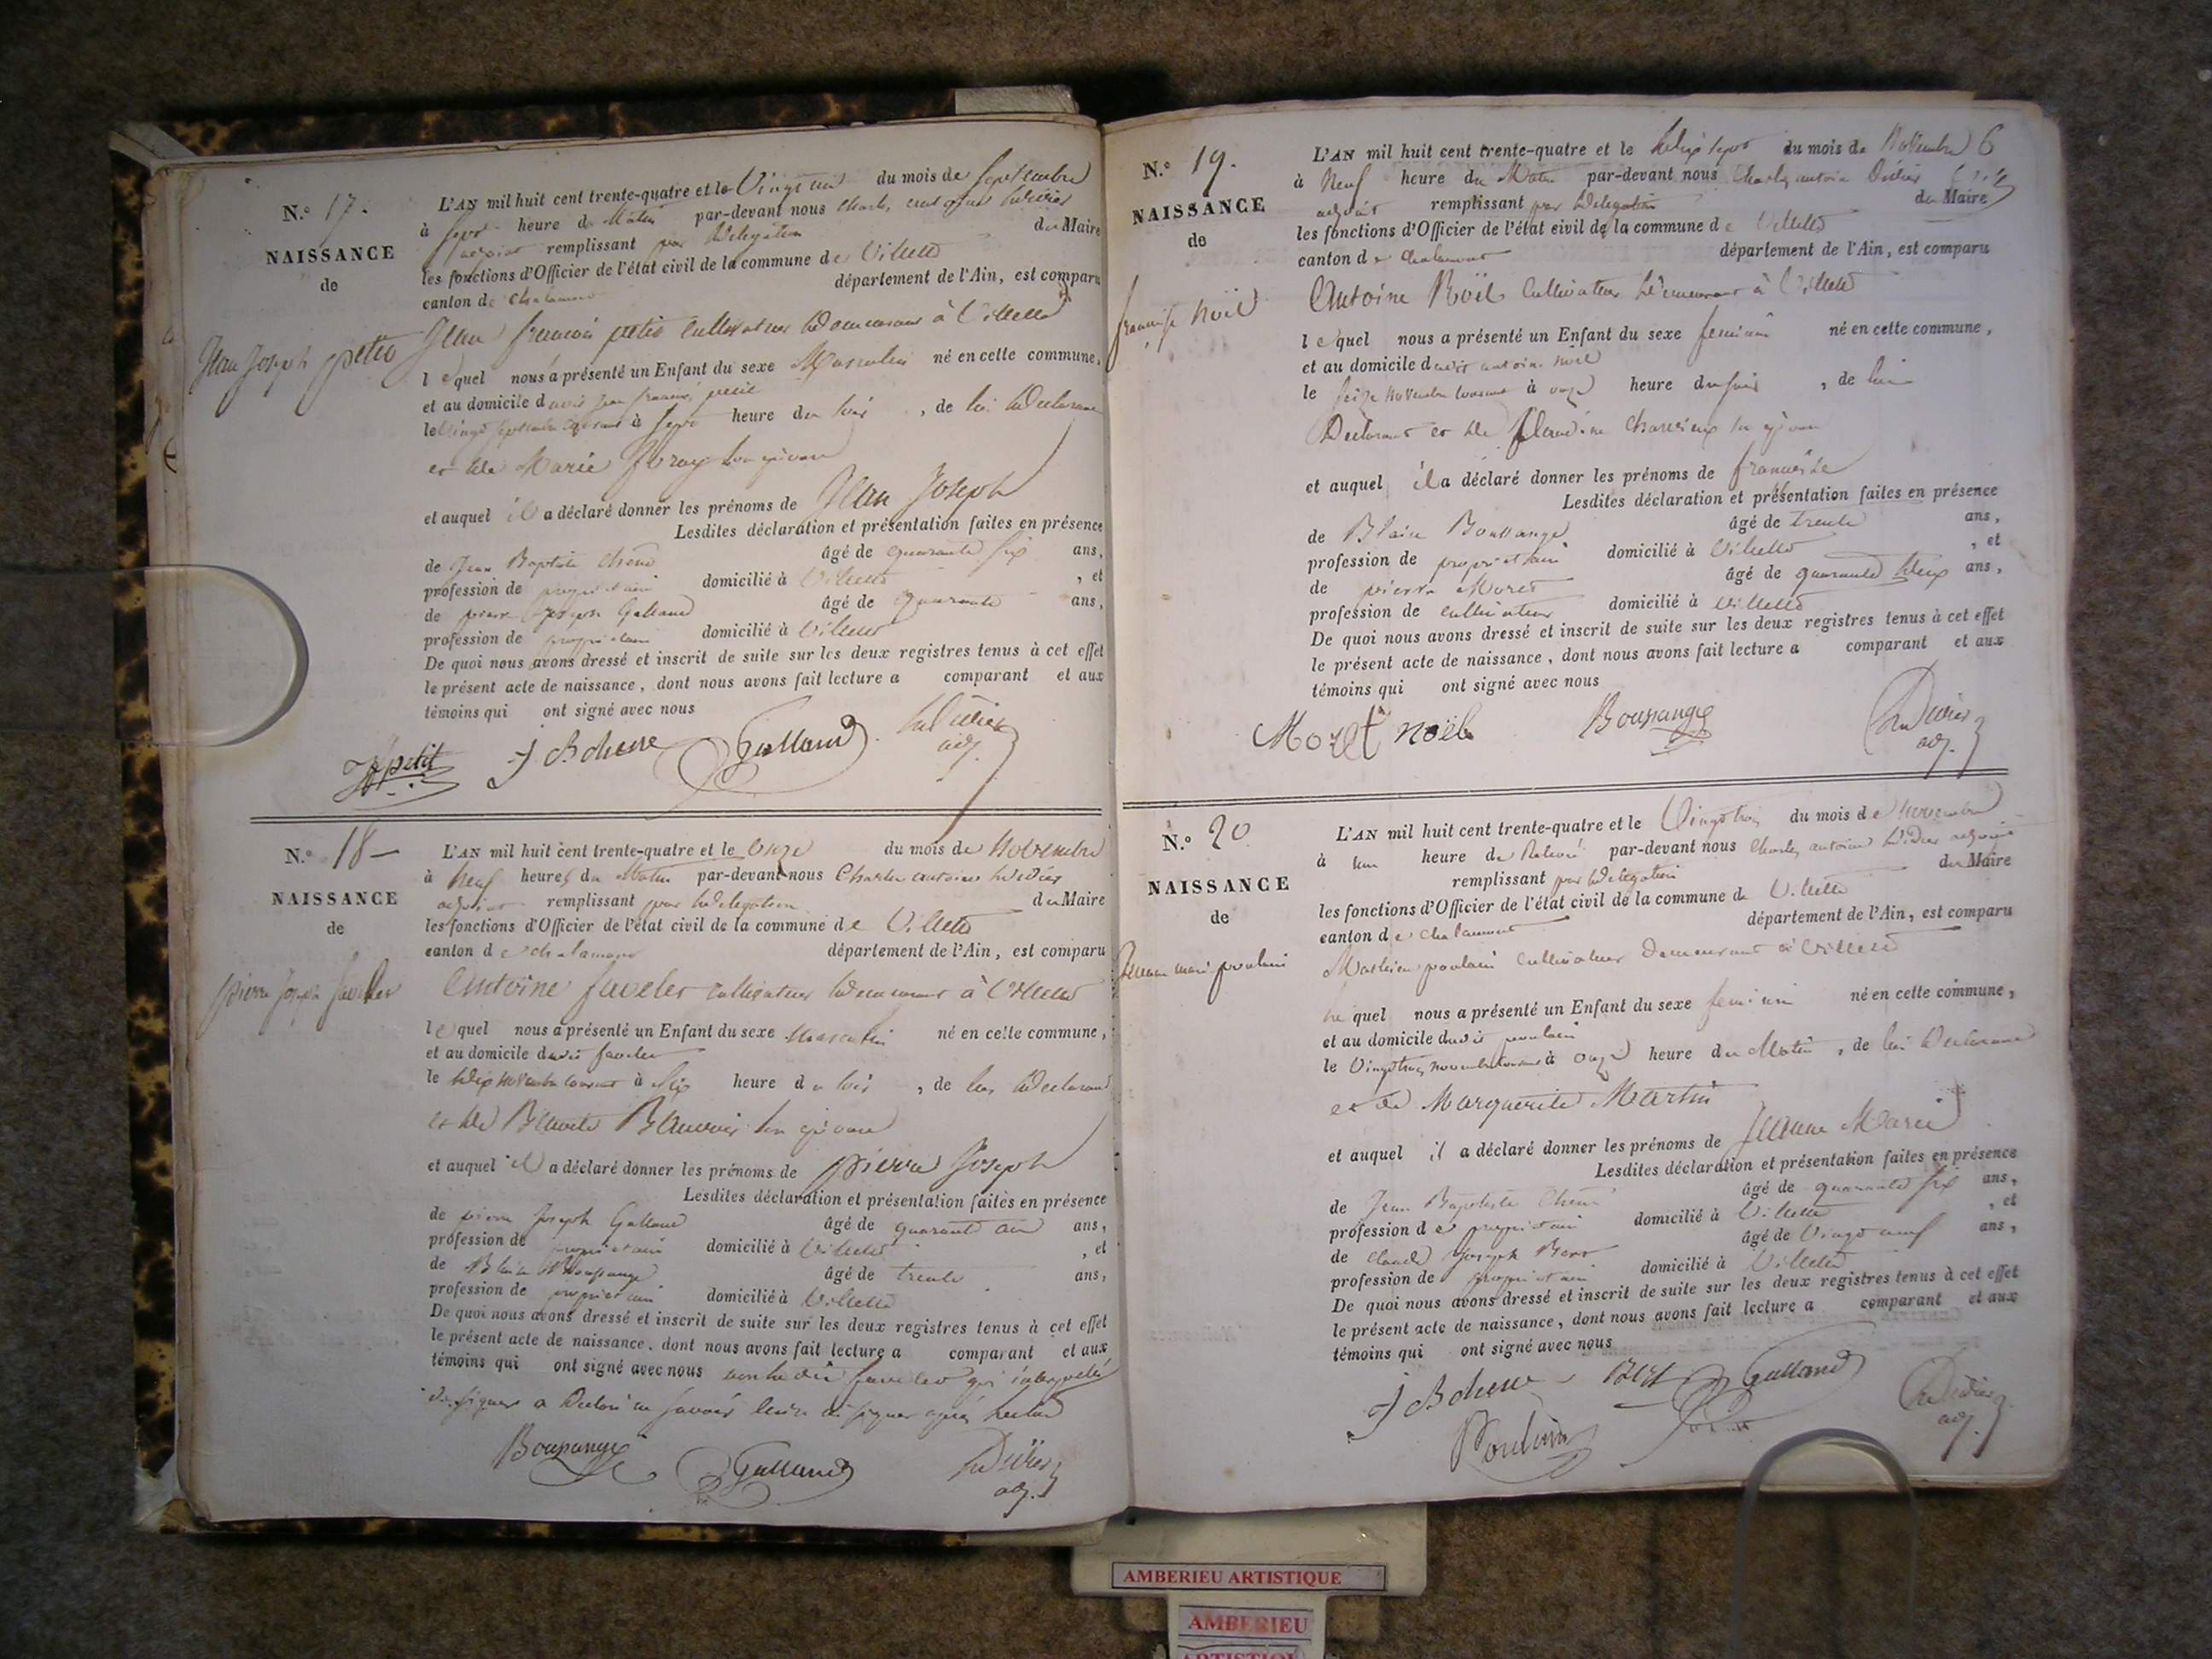 N.° 17.
NAISSANCE
de
Jean Joseph petit
L'AN mil huit cent trente-quatre et le Vingt un du mois de septembre
à sept heure du Matin par-devant nous Charles antoine Didier
adjoint remplissant par Délégation du Maire
les fonctions d'Officier de l'état civil de la commune de Villette
canton de Chalamont département de l'Ain, est comparu
Jean françois petit cultivateur demeurant à Villette
lequel nous a présenté un Enfant du sexe Masculin né en cette commune,
et au domicile dudit Jean françois petit
le vingt septembre courant à sept heure du soir, de lui Déclarant
et de Marie son épouse
et auquel il a déclaré donner les prénoms de Jean Joseph
Lesdites déclaration et présentation faites en présence
de Jean Baptiste Chêne âgé de quarante six ans,
profession de propriétaire domicilié à Villette, et
de pierre Joseph Galland âgé de quarante ans,
profession de propriétaire domicilié à Villette
De quoi nous avons dressé et inscrit de suite sur les deux registres tenus à cet effet
le présent acte de naissance, dont nous avons fait lecture a comparant et aux
témoins qui ont signé avec nous
petit J B chene Galland Didier
adj.
N.° 18
NAISSANCE
de
pierre Joseph favelet
L'AN mil huit cent trente-quatre et le Onze du mois de Novembre
à Neuf heures du Matin par-devant nous Charles antoine Didier
adjoint remplissant par Délégation du Maire
les fonctions d'Officier de l'état civil de la commune de Villette
canton de chalamont département de l'Ain, est comparu
Antoine favelet cultivateur demeurant à Villette
lequel nous a présenté un Enfant du sexe Masculin né en cette commune,
et au domicile dudit favelet
le dix Novembre courant à six heure du soir, de lui Déclarant
et de son épouse
et auquel il a déclaré donner les prénoms de pierre Joseph
Lesdites déclaration et présentation faites en présence
de pierre Joseph Galland âgé de quarante un ans,
profession de propriétaire domicilié à Villette, et
de Blaise Boussange âgé de trente ans,
profession de propriétaire domicilié à Villette
De quoi nous avons dressé et inscrit de suite sur les deux registres tenus à cet effet
le présent acte de naissance, dont nous avons fait lecture a comparant et aux
témoins qui ont signé avec nous non ledit favelet qui interpellé
de signer a Déclaré ne savoir lire ni signer après lecture
Boussange Galland Didier
adj.
N.° 19.
NAISSANCE
de
françoise Noël
6
L'AN mil huit cent trente-quatre et le dix sept du mois de Novembre
à Neuf heure du Matin par-devant nous Charles antoine Didier
adjoint remplissant par Délégation du Maire
les fonctions d'Officier de l'état civil de la commune de Villette
canton de Chalamont département de l'Ain, est comparu
Antoine Noël Cultivateur Demeurant à Villette
lequel nous a présenté un Enfant du sexe feminin né en cette commune,
et au domicile dudit antoine noël
le seize Novembre courant à onze heure du soir, de lui
Déclarant et de Claudine son épouse
et auquel il a déclaré donner les prénoms de françoise
Lesdites déclaration et présentation faites en présence
de Blaise Boussange âgé de trente ans,
profession de propriétaire domicilié à Villette, et
de pierre Moret âgé de quarante deux ans,
profession de cultivateur domicilié à Villette
De quoi nous avons dressé et inscrit de suite sur les deux registres tenus à cet effet
le présent acte de naissance, dont nous avons fait lecture a comparant et aux
témoins qui ont signé avec nous
Moret noël Boussange Didier
adj.
N.° 20
NAISSANCE
de
Jeanne marie poulain
L'AN mil huit cent trente-quatre et le Vingt trois du mois de Novembre
à une heure de Relevée par-devant nous Charles antoine Didier adjoint
remplissant par Délégation du Maire
les fonctions d'Officier de l'état civil de la commune de Villette
canton de chalamont département de l'Ain, est comparu
Mathieu poulain cultivateur Demeurant à Villette
lequel nous a présenté un Enfant du sexe feminin né en cette commune,
et au domicile dudit poulain
le Vingt trois novembre courant à onze heure du Matin, de lui Déclarant
et de Marguerite Martin
et auquel il a déclaré donner les prénoms de Jeanne Marie
Lesdites déclaration et présentation faites en présence
de Jean Baptiste Chêne âgé de quarante six ans,
profession de propriétaire domicilié à Villette, et
de Claude Joseph Bert âgé de Vingt neuf ans,
profession de propriétaire domicilié à Villette
De quoi nous avons dressé et inscrit de suite sur les deux registres tenus à cet effet
le présent acte de naissance, dont nous avons fait lecture a comparant et aux
témoins qui ont signé avec nous
J B chene Bert Galland Didier
adj.
Poulain
AMBERIEU ARTISTIQUE
AMBERIEU
ARTISTIQUE